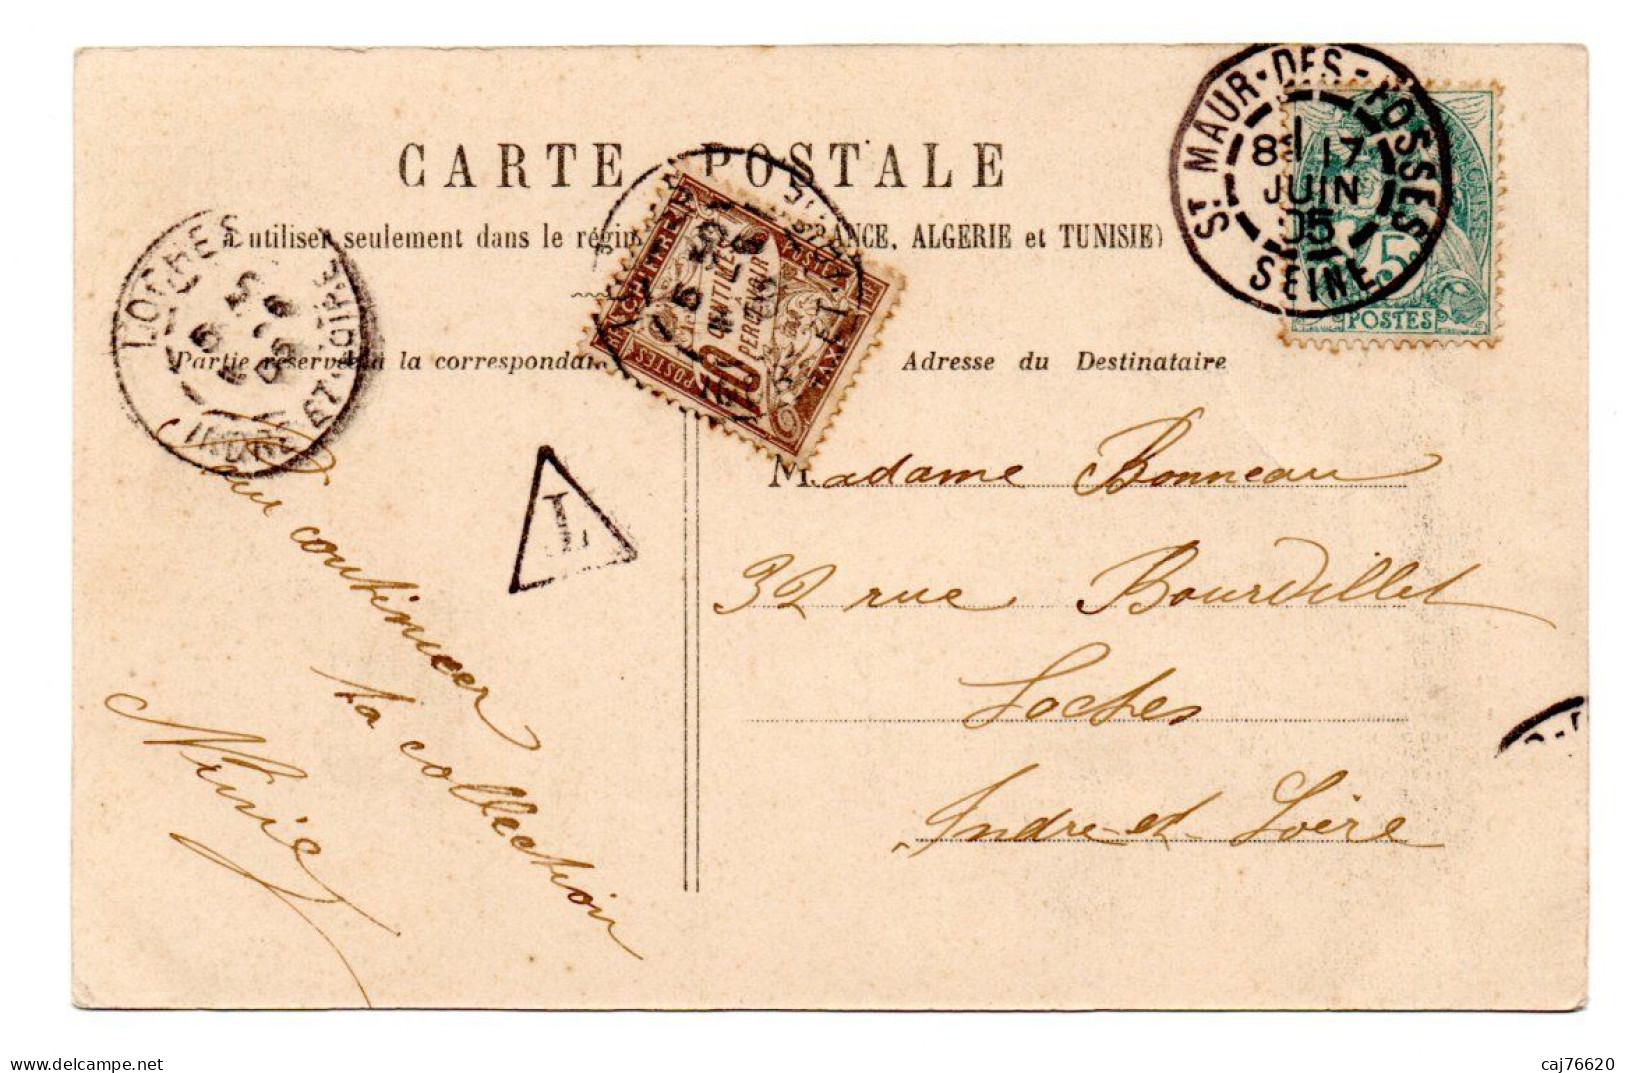 CARTE POSTALE
à utiliser seulement dans le régim FRANCE, ALGERIE et TUNISIE)
Partie réservée à la correspondan
Adresse du Destinataire
ST MAUR-DES-FOSSES
8E 17
JUIN
05
SEINE
5
POSTES
LOCHES
INDRE-ET-LOIRE
A PERCEVOIR
CENTIMES
10
POSTES
T
Madame Bonneau
32 rue Bourdillet
Loches
Indre-et-Loire
Pour continuer
la collection
delcampe.net
caj76620